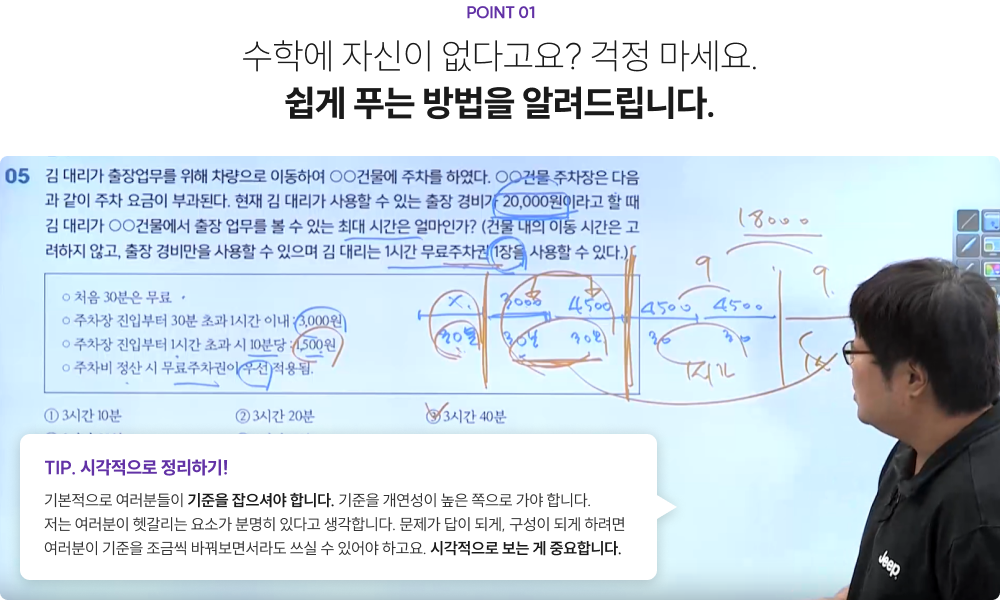 POINT 01
수학에 자신이 없다고요? 걱정 마세요.
쉽게 푸는 방법을 알려드립니다.
05 김 대리가 출장업무를 위해 차량으로 이동하여 ○○건물에 주차를 하였다. ○○건물 주차장은 다음
과 같이 주차 요금이 부과된다. 현재 김 대리가 사용할 수 있는 출장 경비가 20,000원이라고 할 때
김 대리가 ○○건물에서 출장 업무를 볼 수 있는 최대 시간은 얼마인가? (건물 내의 이동 시간은 고
려하지 않고, 출장 경비만을 사용할 수 있으며 김 대리는 1시간 무료주차권 1장을 사용할 수 있다.)
○ 처음 30분은 무료
○ 주차장 진입부터 30분 초과 1시간 이내 : 3,000원
○ 주차장 진입부터 1시간 초과 시 10분당 : 1,500원
○ 주차비 정산 시 무료주차권이 우선 적용됨.
18000
9 9
X. 3000 4500 4500 4500
30분 30분 30분 30 30
1시간
① 3시간 10분 ② 3시간 20분 ③ 3시간 40분
TIP. 시각적으로 정리하기!
기본적으로 여러분들이 기준을 잡으셔야 합니다. 기준을 개연성이 높은 쪽으로 가야 합니다.
저는 여러분이 헷갈리는 요소가 분명히 있다고 생각합니다. 문제가 답이 되게, 구성이 되게 하려면
여러분이 기준을 조금씩 바꿔보면서라도 쓰실 수 있어야 하고요. 시각적으로 보는 게 중요합니다.
Jeep